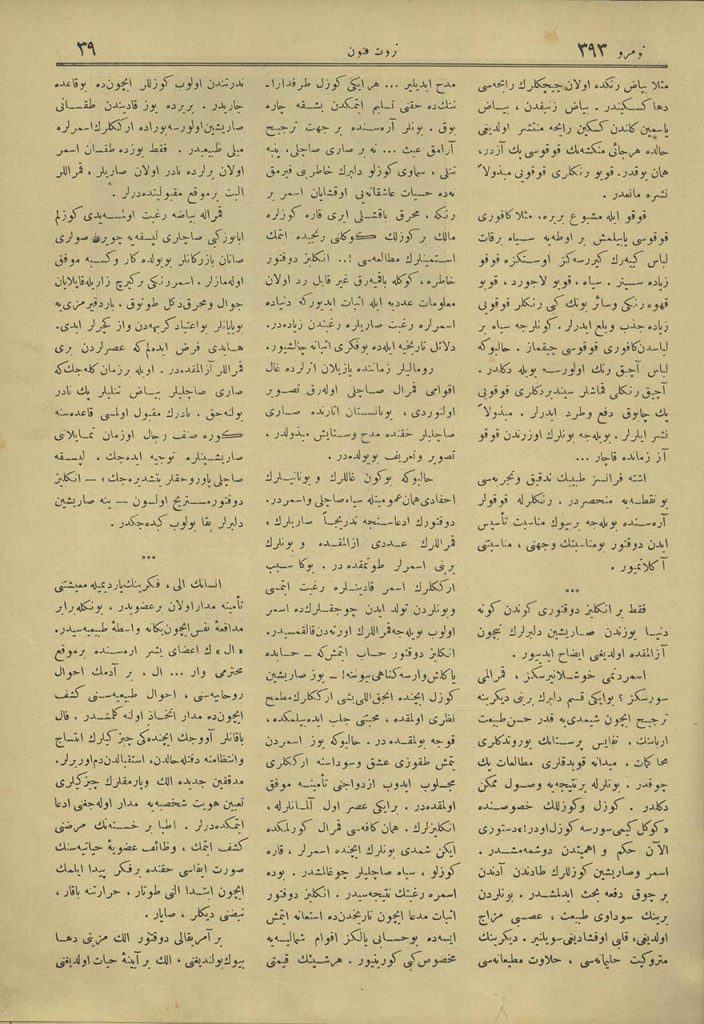 نومرو ٣٩٣
ثروت فنون
٣٩
مثلا بیاض رنكده اولان چیچكلرك رایحه‌سی
دها كسكیندر . بیاض زنبقدن ، بیاض
یاسمین كلندن كسكین رایحه منتشر اولدیغی
حالده هرجائی منكشه‌نك قوقوسی پك آزدر،
همان یوقدر. قویو رنكلری قوقویی مبذولاً
نشره مانعدر .
قوقو ایله مشبوع بریره، مثلا كافوری
قوقوسی یاییلمش بر اوطه‌یه سیاه برقات
لباس كییه‌رك كیررسه‌كز اوستكزه قوقو
زیاده سینر . سیاه ، قویو لاجورد ، قویو
قهوه رنكی وسائر بونك كبی رنكلر قوقویی
زیاده جذب وبلع ایدرلر . كونلرجه سیاه بر
لباسدن كافوری قوقوسی چیقماز . حالبوكه
لباس آچیق رنك اولورسه بویله دكلدر .
آچیق رنكلی قماشلر سیندیردكلری قوقویی
پك چابوق دفع وطرد ایدرلر ، مبذولاً
نشر ایلرلر . بویله‌جه بونلرك اوزرندن قوقو
آز زمانده قاچار ...
اشته فرانسز طبیبك تدقیق وتجربه‌سی
بو نقطه‌یه منحصردر . رنكلرله قوقولر
آره‌سنده بویله‌جه برسیوك مناسبت تأسیس
ایدن دوقتور بومناسبتك وجهنی ، مناسبتنی
آكلاتمیور .
***
فقط بر انكلیز دوقتوری كوندن كونه
دنیا یوزندن صاریشین دلبرلرك نیچون
آزالمقده اولدیغی ایضاح ایدییور .
اسمردنمی خوشلانیرسكز ، قمرالمی
سورسكز ؟ بوایكی قسم دلبرك برینی دیكرینه
ترجیح ایچون شیمدی‌یه قدر حسن طبیعت
اربابنك ، نفایس پرستانك یوروتدكلری
محاكمات ، میدانه قویدقلری مطالعات پك
چوقدر . بونلرله برنتیجه‌یه وصول ممكن
دكلدر . كوزل وكوزللك خصوصنده
«كوكل كیمی سورسه كوزل اودر!» دستوری
الآن حكم و اهمیتدن دوشمه‌مشدر .
اسمر وصاریشین كوزللرك طاندن آدندن
بر چوق دفعه بحث ایدلمشدر . بونلردن
برینك سوداوی طبیعت ، عصبی مزاج
اولدیغی، قلبی اوقشادیغی سویلنیر . دیكرینك
متروكیت حلیمانه‌سی ، حلاوت مطیعانه‌سی
مدح ایدیلیر ... هر ایكی كوزل طرفدارا-
ننكده حقنی تسلیم ایتمكدن بشقه چاره
یوق . بونلر آره‌سنده بر جهت ترجیح
آرامق عبث ... نه بر صاری صاچلی، پنبه
تنلی ، سماوی كوزلو دلبرك خاطرینی قیرمق
نه‌ده حسیات عاشقانه‌یی اوقشایان اسمر بر
رنكه ، محرق باقشلی ایری قاره كوزلره
مالك بر كوزلك كوكلنی رنجیده ایتمك
استمینلرك مطالعه‌سی !.. انكلیز دوقتور
خاطره ، كوكله باقمیه‌رق غیر قابل رد اولان
معلومات عددیه ایله اثبات ایدیوركه دنیاده
اسمرلره رغبت صاریلره رغبتدن زیاده‌در.
دلائل تاریخیه ایله‌ده بوفكری اثباته چالیشیور.
رومالیلر زماننده یازیلان اثرلرده غال
اقوامی قمرال صاچلی اوله‌رق تصویر
اولنوردی ، یونانستان اثارنده صاری
صاچلیلر حقنده مدح وستایش مبذولدر ،
تصویر وتعریف بویوله‌ده‌در .
حالبوكه بوكون غاللرك و یونانیلرك
احفادی همان عمومیتله سیاه صاچلی واسمردر.
دوقتورك ادعاسنجه تدریجاً صاریلرك ،
قمراللرك عددی ازالمقده و بونلرك
یرینی اسمرلر طوتمقده‌در . بوكا سبب
ارككلرك اسمر قادینلره رغبت ایتمسی
وبونلردن تولد ایدن چوجقلرك‌ده اسمر
اولوب بویله‌جه قمراللرك اورته‌دن قالقمه‌سیدر.
انكلیز دوقتور حساب ایتمش‌كه — حسابده
یاكلش وارسه كناهی بوینینه! — یوز صاریشین
كوزل ایچنده انجق اللی‌بشی ارككلرك مطمح
نظری اولمقده ، محبتنی جلب ایده‌بیلمكده ،
قوجه بولمقده‌در . حالبوكه یوز اسمردن
یتمش طقوزی عشق وسوداسنه ارككلری
مجلوب ایدوب ازدواجنی تأمینه موفق
اولمقده‌در . برایكی عصر اول آلمانلرله ،
انكلیزلرك . همان كافه‌سی قمرال كورلمكده
ایكن شمدی بونلرك ایچنده اسمرلر ، قاره
كوزلو ، سیاه صاچلیلر چوغالمشدر . بوده
اسمره رغبتك نتیجه‌سیدر . انكلیز دوقتور
اثبات مدعا ایچون تاریخدن‌ده استعانه ایتمش
ایسه‌ده بوحسابی یالكز اقوام شمالیه‌یه
مخصوص كبی كورینیور . هرشیئك قیمتی
ندرتندن اولوب كوزللر ایچون‌ده بوقاعده
جاریدر . بریرده یوز قادیندن طقسانی
صاریشین اولورسه بوراده ارككلرك اسمرلره
میلی طبیعیدر . فقط یوزده طقسان اسمر
اولان یرلرده نادر اولان صاریلر ، قمراللر
البت بر موقع مقبولیتده‌درلر .
قمراله بیاضه رغبت اولمسه‌یدی كوزلم
ابانوز كبی صاچلری لپسقه‌یه چویرن صولری
صاتان بازركانلر بویولده كار وكسبه موفق
اوله‌مازلر، اسمر رنكی ركیرچ زار یله قاپلایان
جوال ومحرق دكل طونوق ، باردقیرمزی‌یه
بویایانلر بواعتیاد كریهه‌دن واز كچرلر ایدی.
هایدی فرض ایده‌لم كه عصرلردن بری
قمراللر آزالمقده‌در . اویله برزمان كله‌جك‌كه
صاری صاچلیلر بیاض تنلیلر پك نادر
بولنه‌جق . نادرك مقبول اولمسی قاعده‌سنه
كوره صنف رجال اوزمان تمایلاتنی
صاریشینلره توجیه ایده‌جك ، لپسقه
صاچلی یاوروجقلر یتشدیره‌جك ؛ — انكلیز
دوقتور مستریح اولسون — ینه صاریشین
دلبرلر بقا بولوب كیده‌جكدر .
***
انسانك الی ، فكرینك یاردیمیله معیشتنی
تأمینه مدار اولان برعضویدر . بونكله برابر
مدافعهٔ نفس ایچون یكانه واسطهٔ طبیعیه‌سیدر.
«ال» ك اعضای بشر اره‌سنده برموقع
محترمی وار ... ال ، بر آدمك احوال
روحانیه‌سنی ، احوال طبیعیه‌سنی كشف
ایچون‌ده مدار اتخاذ اولنه كلمشدر . فال
باقانلر آووجك ایچنده‌كی چیزكیلرك انتاج
وانتظامنه دقتله حالدن، استقبالدن دم اورییرلر.
مدققین جدیده الك وپارمقلرك چیزكیلری
تعیین هویت شخصیه‌یه مدار اوله‌جغنی ادعا
ایتمكده‌درلر . اطبا بر خسته‌نك مرضنی
كشف ایتمك ، وظائف عضویهٔ حیاتیه‌سنك
صورت ایفاسی حقنده برفكر پیدا ایلمك
ایچون ابتدا الی طوتار ، حرارتنه باقار،
نبضنی دیكلر ، صایار .
بر آمریقالی دوقتور الك مزیتنی دها
بیوك بولندیغنی ، الك بر آیینهٔ حیات اولدیغنی